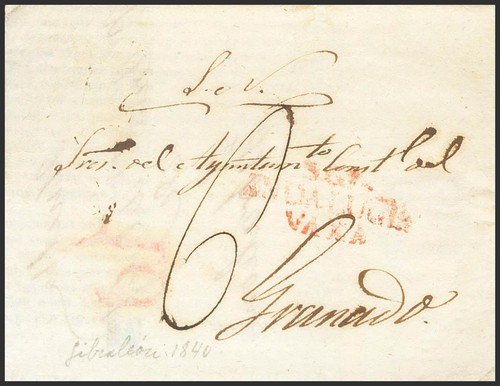 S. N.
Sres. del Ayuntamto Constl. del
6
ANDALUCIA
Granado.
Gibraleón. 1840